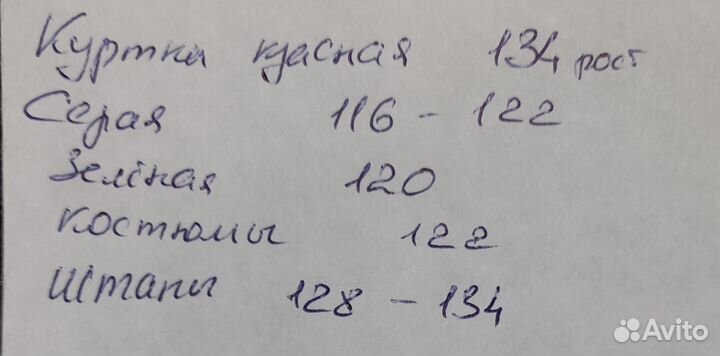 Куртки красная 134 рост
Серая 116 - 122
Зелёная 120
Костюмы 122
Штаны 128 - 134
Avito